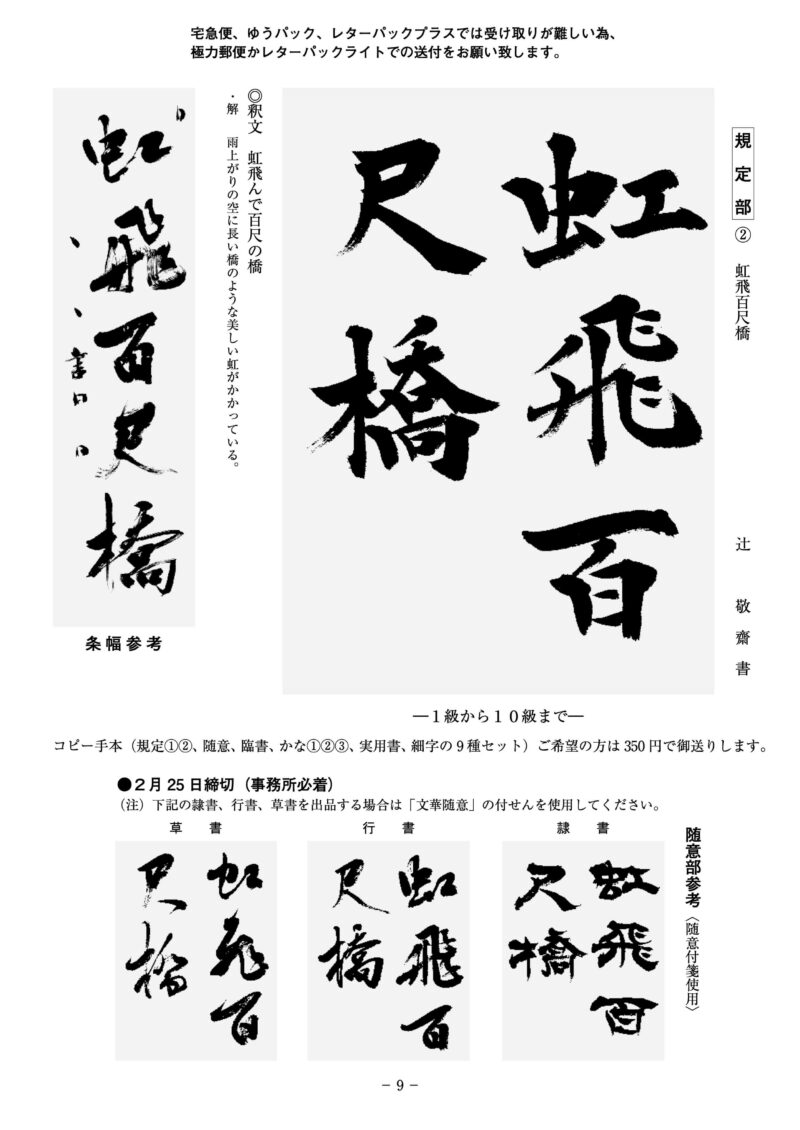 宅急便、ゆうパック、レターパックプラスでは受け取りが難しい為、
極力郵便かレターパックライトでの送付をお願い致します。
規定部② 虹飛百尺橋
辻敬齋書
虹飛百
尺橋
◎釈文 虹飛んで百尺の橋
・解 雨上がりの空に長い橋のような美しい虹がかかっている。
虹飛百尺橋
条幅参考
―１級から１０級まで―
コピー手本（規定①②、随意、臨書、かな①②③、実用書、細字の9種セット）ご希望の方は350円で御送りします。
●２月25日締切（事務所必着）
（注）下記の隷書、行書、草書を出品する場合は「文華随意」の付せんを使用してください。
随意部参考〈随意付箋使用〉
隷書
虹飛百
尺橋
行書
虹飛百
尺橋
草書
虹飛百
尺橋
－9－